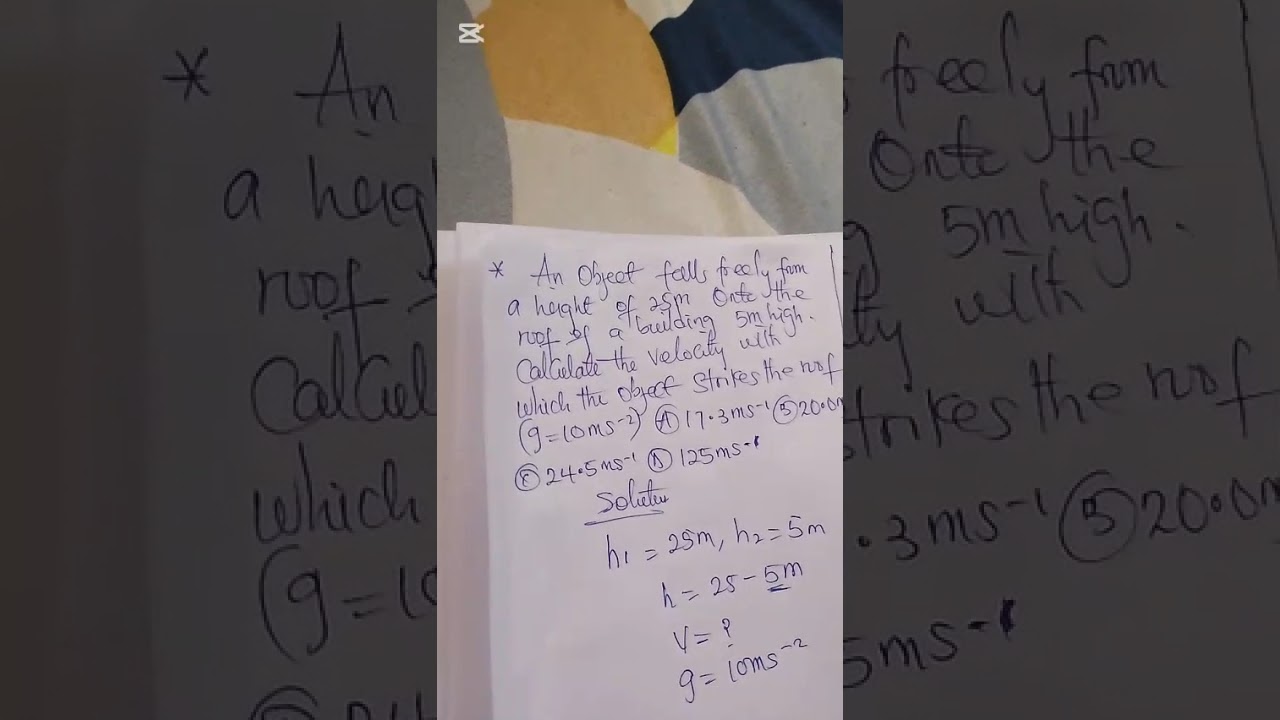 * An Object falls freely from
a height of 25m Onto the
roof of a building 5m high.
Calculate the velocity with
which the object strikes the roof
(g=10ms⁻²) Ⓐ 17.3ms⁻¹ Ⓑ 20.0m
Ⓒ 24.5ms⁻¹ Ⓓ 125ms⁻¹
Solution
h₁ = 25m, h₂ = 5m
h = 25 - 5m
V = ?
g = 10ms⁻²